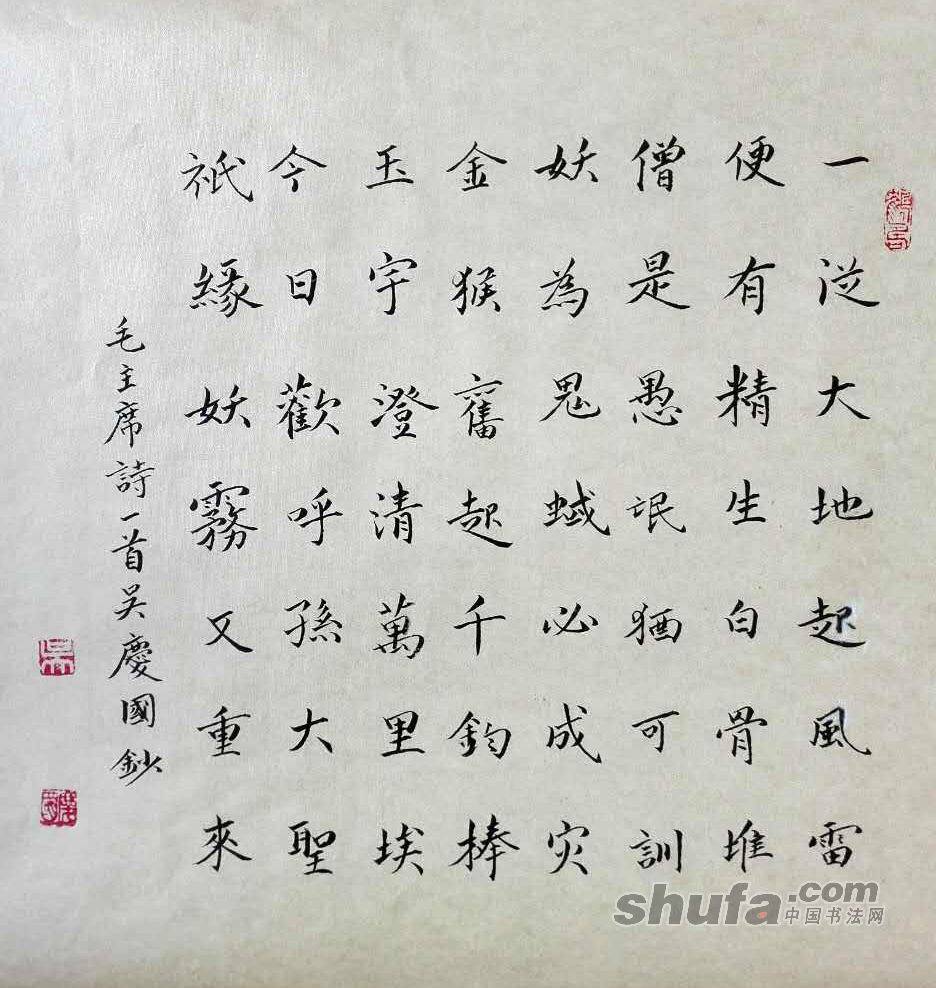 一從大地起風雷
便有精生白骨堆
僧是愚氓猶可訓
妖為鬼蜮必成灾
金猴奮起千鈞棒
玉宇澄清萬里埃
今日歡呼孫大聖
祇緣妖霧又重來
毛主席詩一首吴慶國鈔
shufa.com
中国书法网